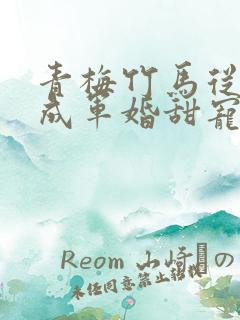 青梅竹馬從
成軍婚甜寵
Reom 山崎の
未任同意禁止轉載